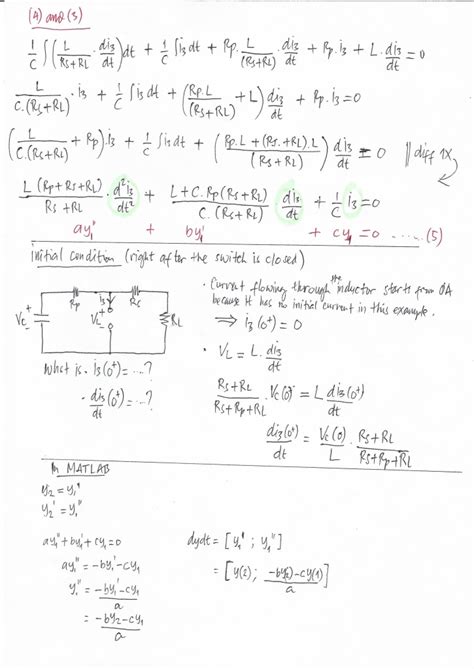 (4) and (3)
1/C ∫(L/(Rs+RL) · di3/dt)dt + 1/C ∫i3 dt + Rp · L/(Rs+RL) · di3/dt + Rp.i3 + L · di3/dt = 0
L/(C.(Rs+RL)) · i3 + 1/C ∫i3 dt + (Rp.L/(Rs+RL) + L) di3/dt + Rp.i3 = 0
(L/(C.(Rs+RL)) + Rp).i3 + 1/C ∫i3 dt + (Rp.L + (Rs+RL).L/(Rs+RL)) di3/dt = 0 || diff 1x
L(Rp+Rs+RL)/(Rs+RL) · d²i3/dt² + (L+C.Rp(Rs+RL))/(C.(Rs+RL)) · di3/dt + 1/C i3 = 0
ay1'' + by1' + cy1 = 0 ..... (5)
initial condition (right after the switch is closed)
Rp i3 Rs
Vc + - VL + - RL
What is · i3(0+) = ....?
· di3/dt (0+) = ....?
· Current flowing through the inductor starts from 0A
because it has no initial current in this example.
⇒ i3(0+) = 0
· VL = L · di3/dt
(Rs+RL)/(Rs+Rp+RL) · Vc(0) = L di3(0+)/dt
di3(0+)/dt = Vc(0)/L · (Rs+RL)/(Rs+Rp+RL)
In MATLAB
y2 = y1'
y2' = y1''
ay1'' + by1' + cy1 = 0
ay1'' = -by1' - cy1
y1'' = (-by1' - cy1)/a
= (-by2 - cy1)/a
dydt = [y1' ; y1'']
= [y(2); (-by(2) - cy(1))/a]